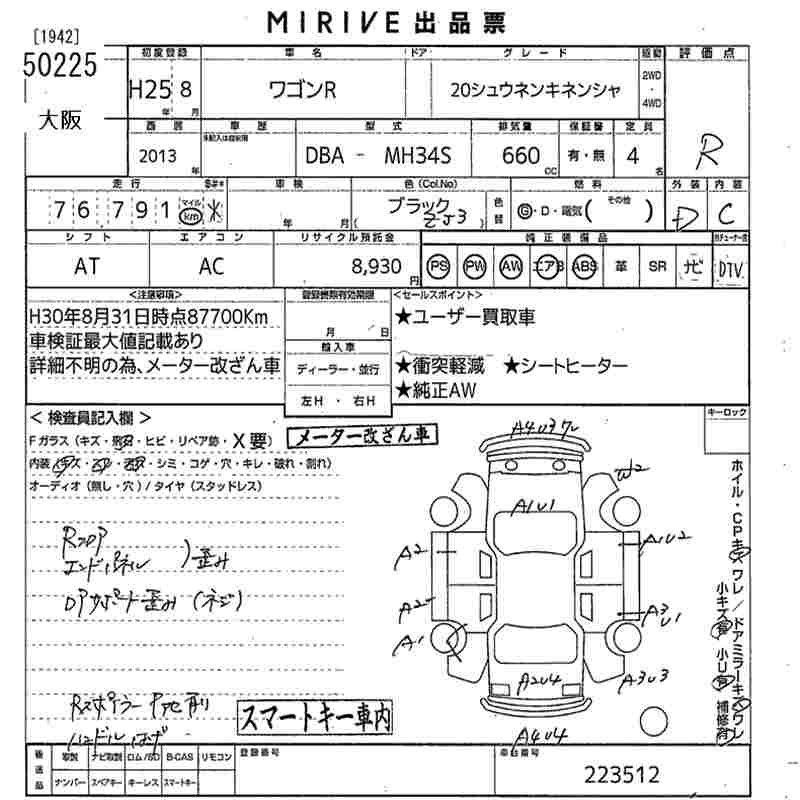 MIRIVE出品票
[1942]
50225
大阪
初度登録 車名 ドア グレード 駆動 評価点
H25 8 ワゴンR 20シュウネンキネンシャ 2WD・4WD
年 月
西暦 車歴 型式 排気量 保証書 定員
2013 年 DBA - MH34S 660 CC 有・無 4 名 R
走行 車検 色(Col.No) 燃料 外装 内装
76,791 マイル km * 年 月 ブラック ZJ3 色替 G・D・電気( その他 ) D C
シフト エアコン リサイクル預託金 純正装備品
AT AC 8,930円 PS PW AW エアB ABS 革 SR ナビ DTV
<注意事項> <セールスポイント>
H30年8月31日時点87700Km
車検証最大値記載あり
詳細不明の為、メーター改ざん車
月 日
輸入車
ディーラー・並行
左H・右H
★ユーザー買取車
★衝突軽減 ★シートヒーター
★純正AW
<検査員記入欄> キーロック
Fガラス(キズ・飛石・ヒビ・リペア跡・X要) メーター改ざん車
内装(キズ・ ・ ・シミ・コゲ・穴・キレ・破れ・割れ)
オーディオ(無し・穴)/タイヤ(スタッドレス)
Rフロア
エンドパネル )歪み
Dアサポート歪み(ネジ)
Rスポイラー
ハンドルはげ
スマートキー車内
A4U3ワレ
W2
A1U1
A2 A1U2
A2 A3U1
A1 A3U3
A2U4
A4U4
ホイル・CPキズワレ/ドアミラーキズワレ
小キズ有 小U有 補修有
後送品 取製 ナビ取製 ロム/SD B-CAS リモコン 登録番号 車台番号
ナンバー スペアキー キーレス スマートキー 223512